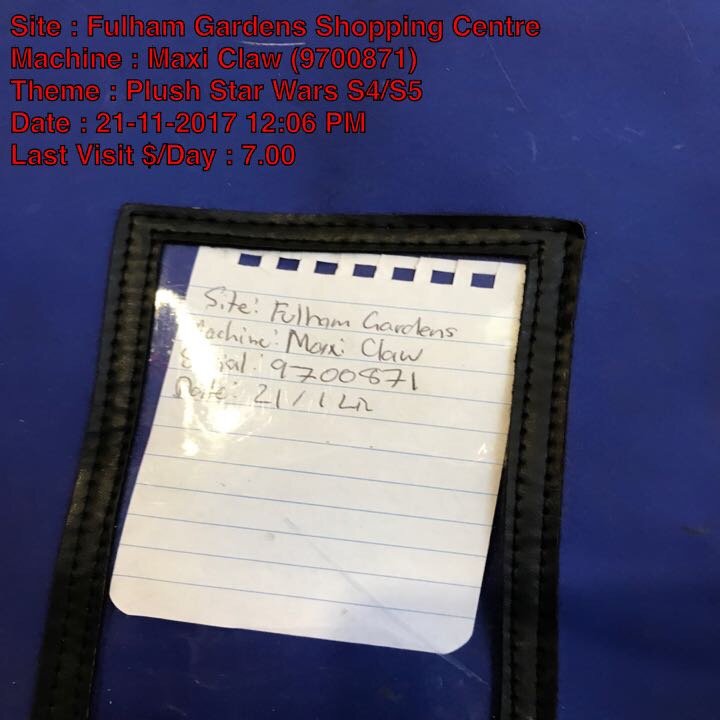 Site : Fulham Gardens Shopping Centre
Machine : Maxi Claw (9700871)
Theme : Plush Star Wars S4/S5
Date : 21-11-2017 12:06 PM
Last Visit $/Day : 7.00
Site: Fulham Gardens
Machine: Maxi Claw
Serial: 9700871
Date: 21/